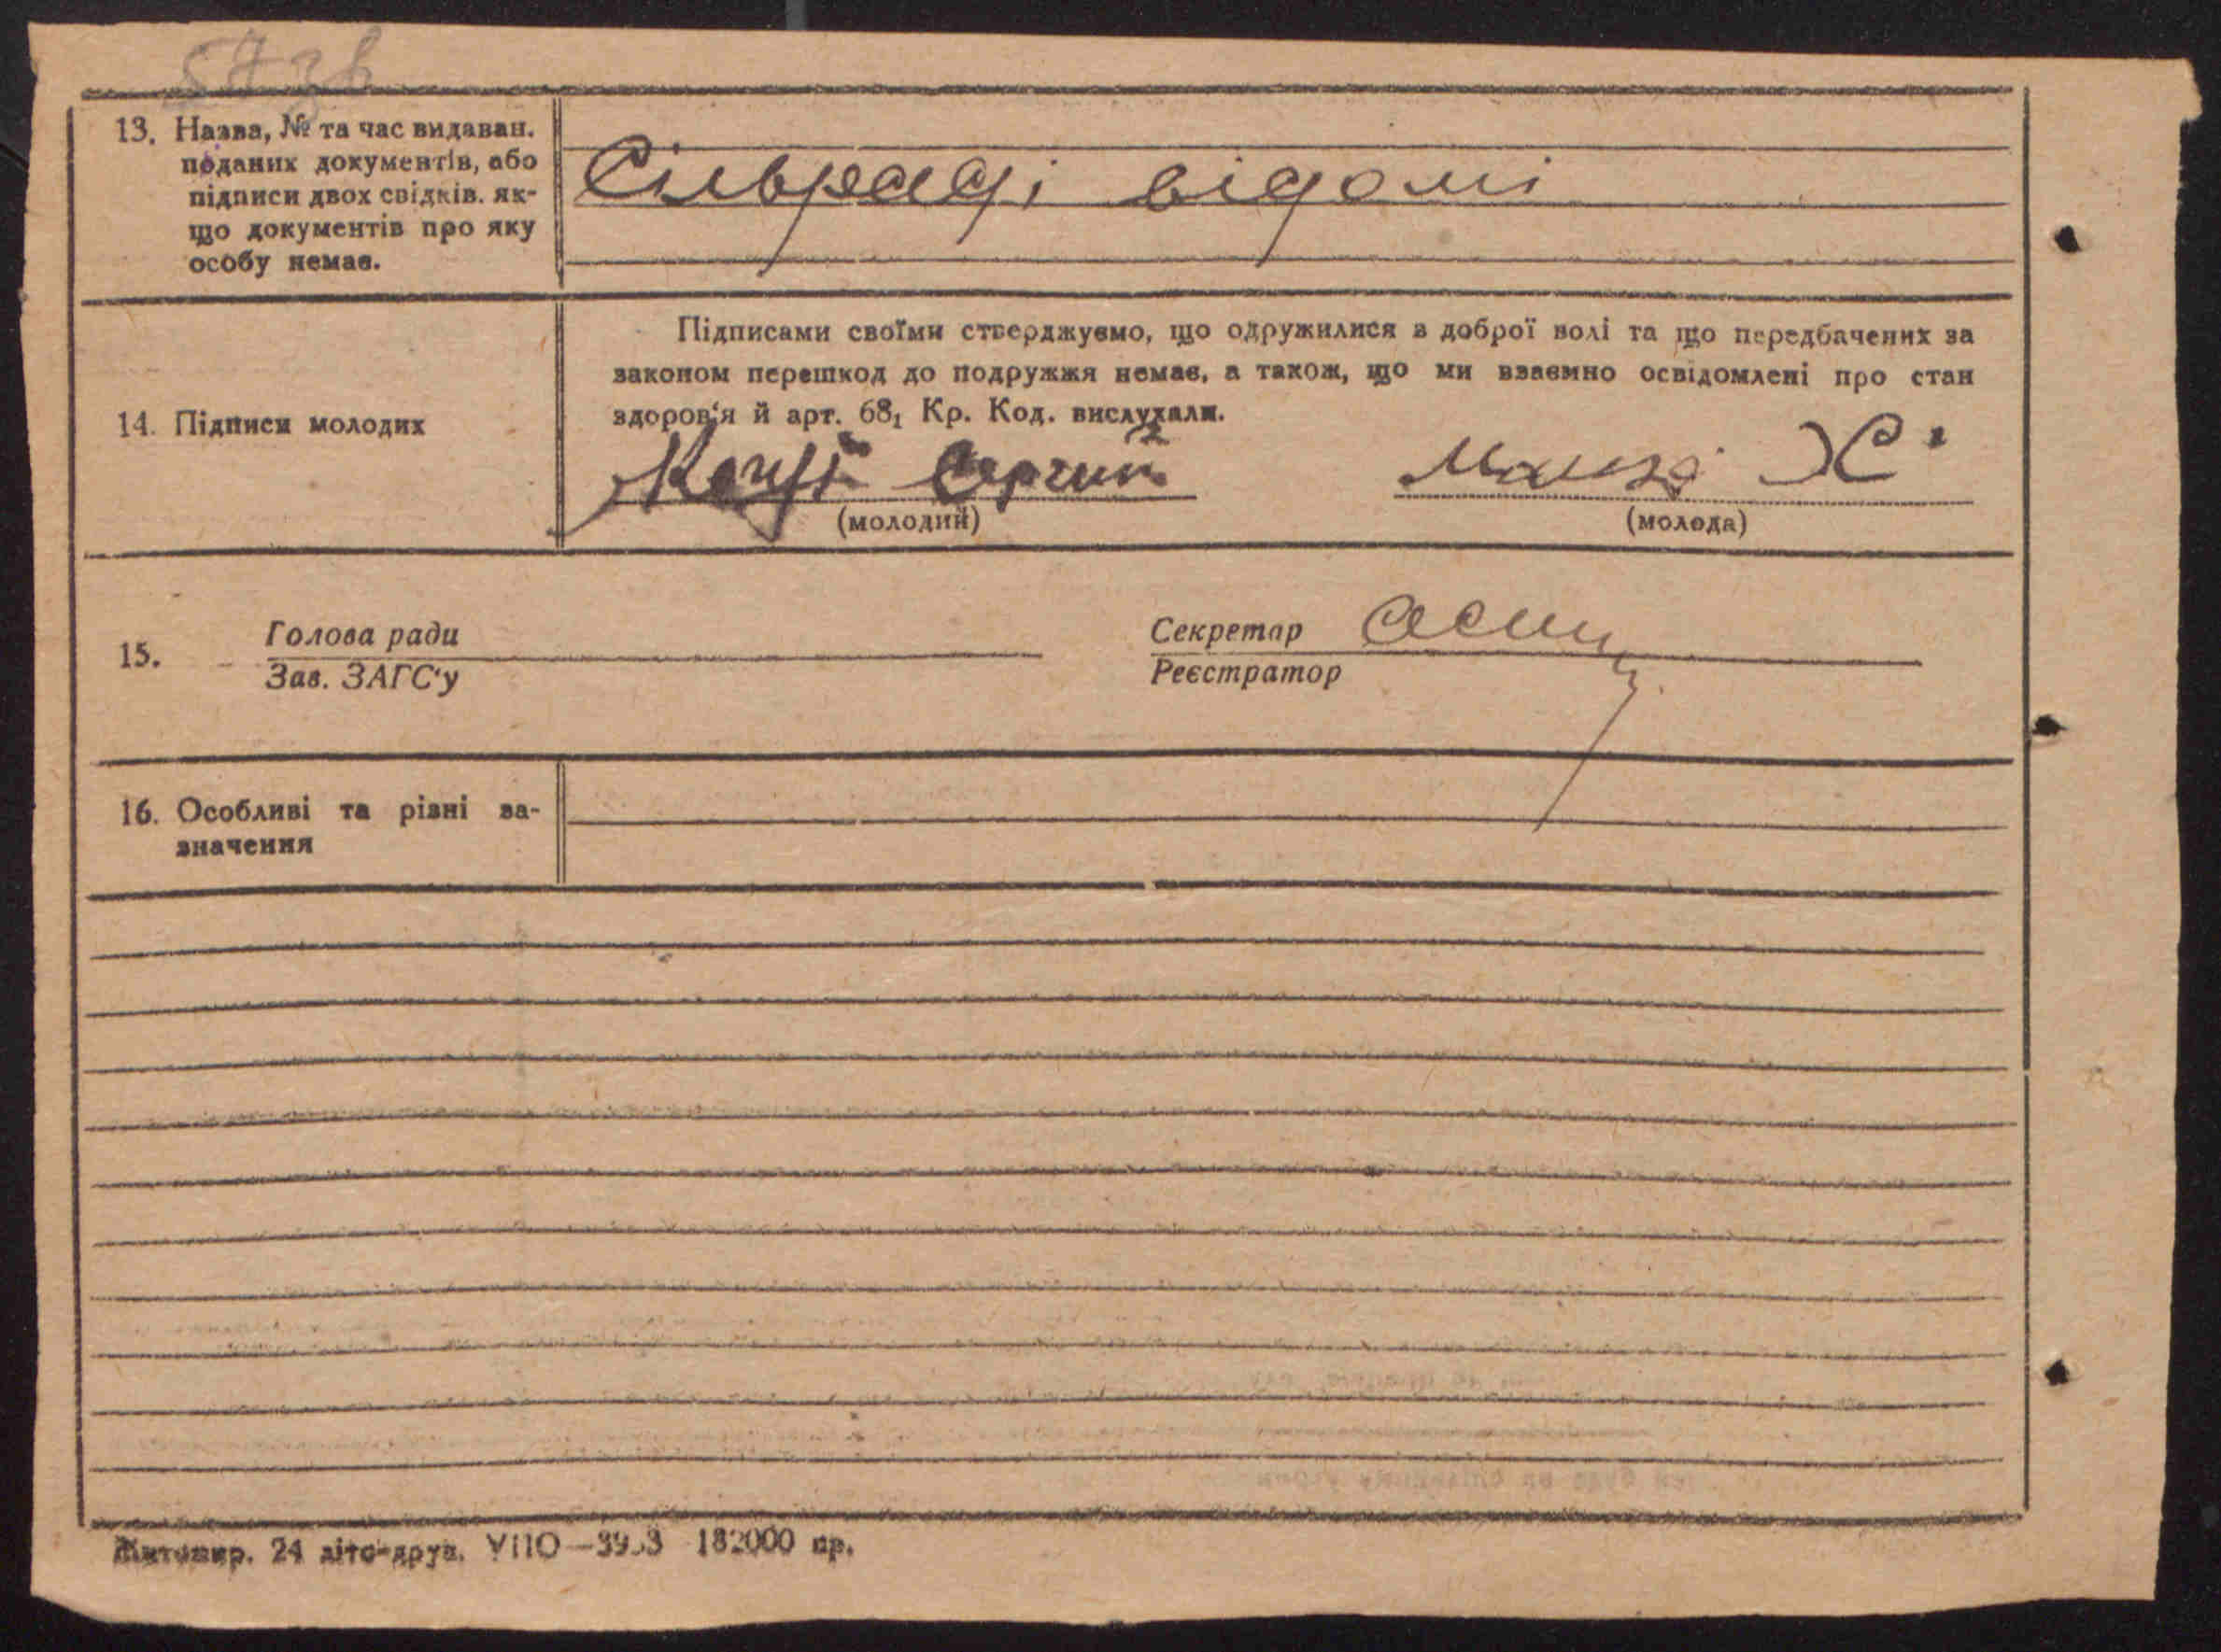 13. Назва, № та час видаван.
поданих документів, або
підписи двох свідків. як-
що документів про яку
особу немає.
Сільраді відомі
14. Підписи молодих
Підписами своїми стверджуємо, що одружилися з доброї волі та що передбачених за
законом перешкод до подружжя немає, а також, що ми взаємно освідомлені про стан
здоров'я й арт. 68₁ Кр. Код. вислухали.
(молодий)
(молода)
15.
Голова ради
Зав. ЗАГС'у
Секретар
Реєстратор
16. Особливі та різні за-
значення
Житомир. 24 літо-друк. УПО 182000 пр.